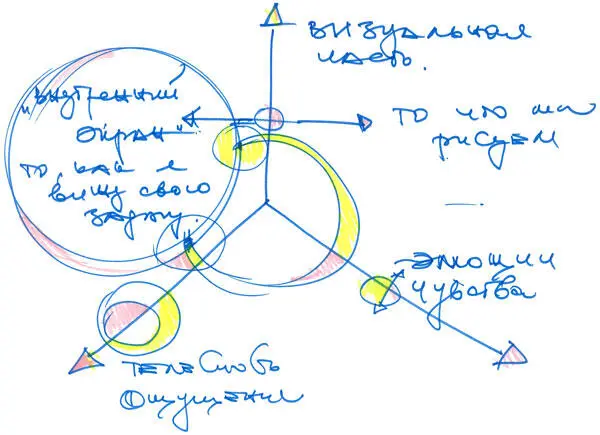 визуальная
часть.
"внутренний
экран"
то, как я
вижу свою
задачу.
то что мы
рисуем
эмоции
чувства
телесность
ощущения